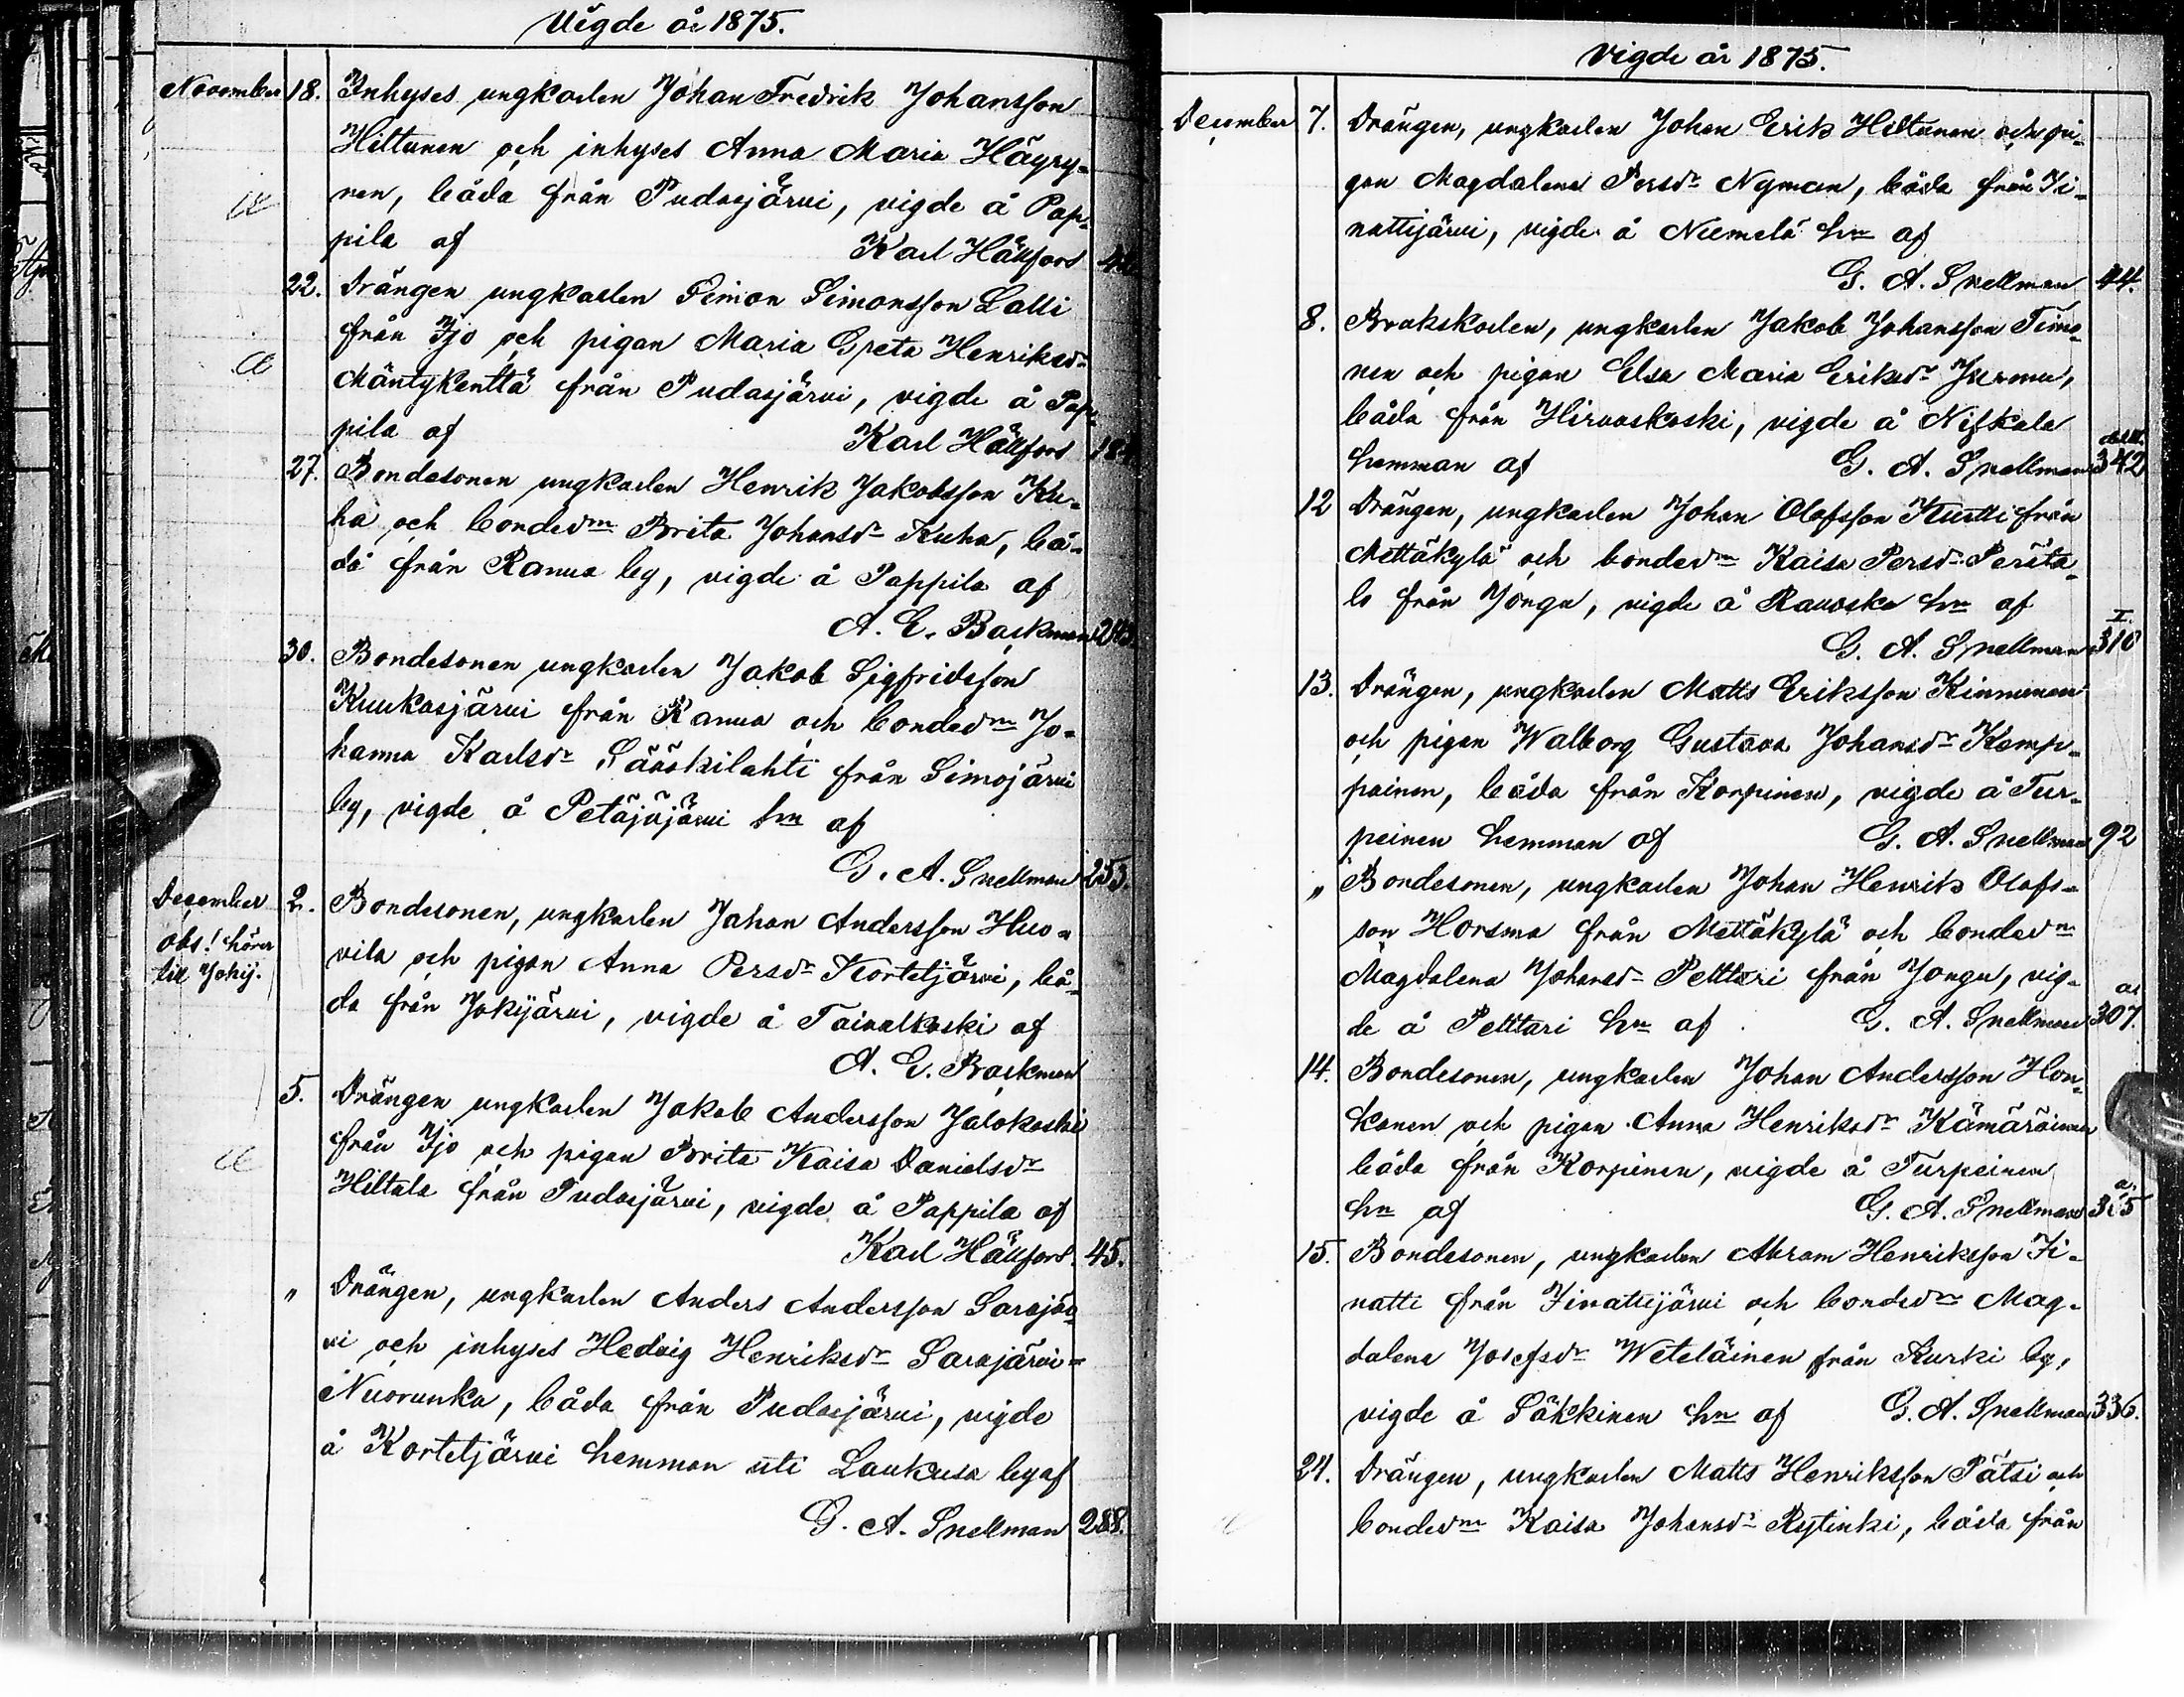 Vigde år 1875.
November 18. Inhyses ungkarlen Johan Fredrik Johansson
Hiltunen och inhyses Anna Maria Häyry-
nen, båda från Pudasjärvi, vigde å Pap-
pila af Karl Hällfors
22. Drängen ungkarlen Simon Simonsson Lalli
från Ijo och pigan Maria Greta Henriksdr
Mäntykenttä från Pudasjärvi, vigde å Pap-
pila af Karl Hällfors
27. Bondesonen ungkarlen Henrik Jakobsson Ku-
ha och bondedrn Brita Johansdr Kuha, bå-
da från Ranua by, vigde å Pappila af
A. E. Backman
30. Bondesonen ungkarlen Jakob Sigfridsson
Kuukasjärvi från Ranua och bondedrn Jo-
hanna Karlsdr Sääskilahti från Simojärvi
by, vigde å Petäjäjärvi hmn af
G. A. Snellman 253.
December 2. Bondesonen, ungkarlen Johan Andersson Huo-
obs! hörer
till Jokij.
vila och pigan Anna Persdr Kortetjärvi, bå-
da från Jokijärvi, vigde å Taivalkoski af
A. E. Backman
5. Drängen ungkarlen Jakob Andersson Jalokoski
från Ijo och pigan Brita Kaisa Danielsdr
Hiltula från Pudasjärvi, vigde å Pappila af
Karl Hällfors. 45.
" Drängen, ungkarlen Anders Andersson Sarajär-
vi och inhyses Hedvig Henriksdr Sarajärvi-
Nuorunka, båda från Pudasjärvi, vigde
å Kortetjärvi hemman uti Laukusa by af
G. A. Snellman 288.
Vigde år 1875.
December 7. Drängen, ungkarlen Johan Erik Hiltunen och pi-
gan Magdalena Persdr Nyman, båda från Ii-
nattijärvi, vigde å Niemelä hmn af
G. A. Snellman 44.
8. Brukskarlen, ungkarlen Jakob Johansson Timo-
nen och pigan Elsa Maria Eriksdr Jurmu,
båda från Hirvaskoski, vigde å Nifkala
hemman af G. A. Snellman 342
12 Drängen, ungkarlen Johan Olofsson Kurtti från
Mettäkylä och bondedrn Kaisa Persdr Peräta-
lo från Jongu, vigde å Rauoska hmn af
I.
G. A. Snellman 310
13. Drängen, ungkarlen Matts Eriksson Kinnunen
och pigan Walborg Gustava Johansdr Kemp-
painen, båda från Korpinen, vigde å Tur-
peinen hemman af G. A. Snellman 92
" Bondesonen, ungkarlen Johan Henrik Olofs-
son Horsma från Mettäkylä och bondedrn
Magdalena Johansdr Pelttari från Jongu, vig-
de å Pelttari hmn af G. A. Snellman 307.
14. Bondesonen, ungkarlen Johan Andersson Hon-
kanen och pigan Anna Henriksdr Kämäräinen
båda från Korpinen, vigde å Turpeinen
hmn af G. A. Snellman
15. Bondesonen, ungkarlen Abram Henriksson Ii-
natti från Iinattijärvi och bondedrn Mag-
dalena Josefsdr Weteläinen från Kurki by,
vigde å Säkkinen hmn af G. A. Snellman 336.
24. Drängen, ungkarlen Matts Henriksson Pätsi och
bondedrn Kaisa Johansdr Rytinki, båda från